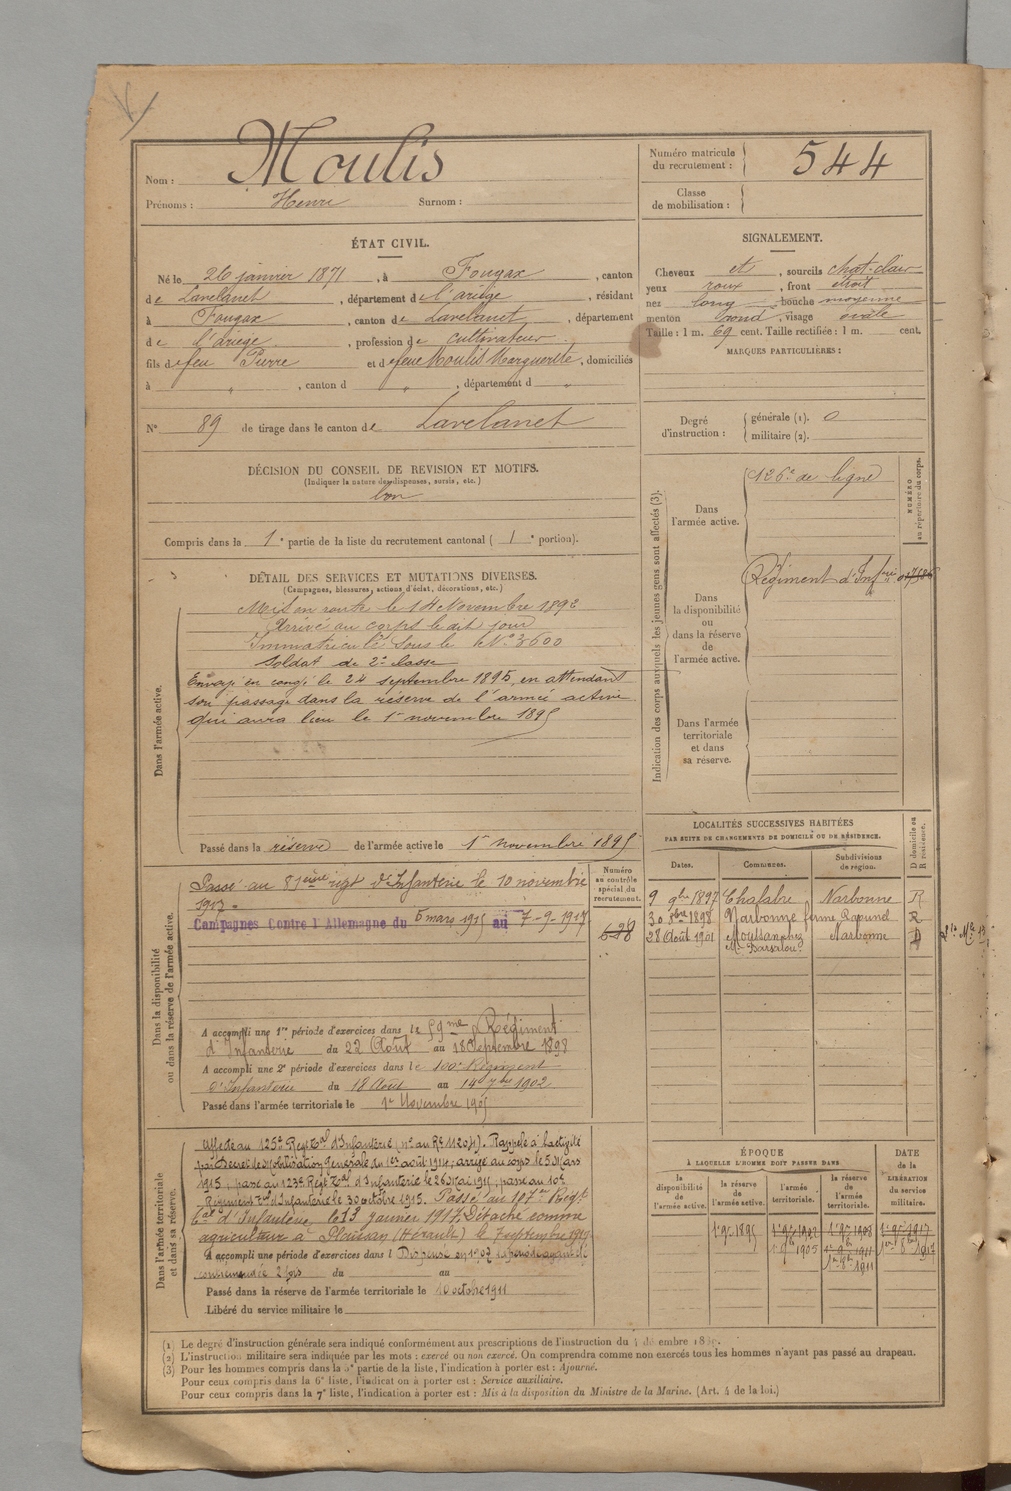 Nom : Moulis
Prénoms : Henri Surnom :
Numéro matricule du recrutement : 544
Classe de mobilisation :
ÉTAT CIVIL.
Né le 26 janvier 1871, à Fougax, canton
de Lavelanet, département de l'ariège, résidant
à Fougax, canton de Lavelanet, département
de l'ariege, profession de cultivateur
fils de feu Pierre et de feue Moulis Marguerite, domiciliés
à " , canton d " , département d "
N° 89 de tirage dans le canton de Lavelanet
SIGNALEMENT.
Cheveux et , sourcils chat. clair
yeux roux , front étroit
nez long , bouche moyenne
menton rond , visage ovale
Taille : 1 m. 69 cent. Taille rectifiée : 1 m. cent.
MARQUES PARTICULIÈRES :
Degré d'instruction : générale (1). 0
militaire (2).
DÉCISION DU CONSEIL DE REVISION ET MOTIFS.
(Indiquer la nature des dispenses, sursis, etc.)
bon
Compris dans la 1e partie de la liste du recrutement cantonal ( 1e portion).
Indication des corps auxquels les jeunes gens sont affectés (3).
NUMÉRO au répertoire du corps.
Dans l'armée active. 126e de ligne
Dans la disponibilité ou dans la réserve de l'armée active. Régiment d'Infrie
Dans l'armée territoriale et dans sa réserve.
DÉTAIL DES SERVICES ET MUTATIONS DIVERSES.
(Campagnes, blessures, actions d'éclat, décorations, etc.)
Dans l'armée active.
Mis en route le 14 Novembre 1892
Arrivé au corps le dit jour
Immatriculé sous le N° 3600
Soldat de 2e classe
Envoyé en congé le 24 septembre 1895, en attendant
son passage dans la réserve de l'armée active
qui aura lieu le 1er novembre 1895
Passé dans la réserve de l'armée active le 1er novembre 1895
Dans la disponibilité ou dans la réserve de l'armée active.
Numéro au contrôle spécial du recrutement.
Passé au 81eme régt d'Infanterie le 10 novembre
1917 =
Campagnes Contre l'Allemagne du 5 mars 1915 au 7-9-1917
A accompli une 1re période d'exercices dans le 59me Régiment
d'Infanterie du 22 Août au 18 Septembre 1898
A accompli une 2e période d'exercices dans le 100e Régiment
d'Infanterie du 18 Août au 14 7bre 1902
Passé dans l'armée territoriale le 1er Novembre 1905
LOCALITÉS SUCCESSIVES HABITÉES
PAR SUITE DE CHANGEMENTS DE DOMICILE OU DE RÉSIDENCE.
Dates. Communes. Subdivisions de région. D domicile ou R résidence.
9 9bre 1897 Chalabre Narbonne R
30 1898 Narbonne ferme R
28 Août 1901 Moussan Narbonne D
Dans l'armée territoriale et dans sa réserve.
Affecté au 125e Régt Tal d'Infanterie (no au Re 11204). Rappelé à l'activité
par Décret de Mobilisation Générale du 1er août 1914; arrivé au corps le 5 Mars
1915, passé au 123e Régt Tal d'Infanterie le 26 Mai 1915, passé au 10e
Régiment Tal d'Infanterie le 30 octobre 1915. Passé au 107me Régt
Tal d'Infanterie, le 13 janvier 1917. Détaché comme
agriculteur à Plaissan (Hérault) le 7 septembre 1917
A accompli une période d'exercices dans l Dispensé en 1907
du au
Passé dans la réserve de l'armée territoriale le 10 octobre 1911
Libéré du service militaire le
ÉPOQUE
À LAQUELLE L'HOMME DOIT PASSER DANS
DATE de la LIBÉRATION du service militaire.
la disponibilité de l'armée active. la réserve de l'armée active. l'armée territoriale. la réserve de l'armée territoriale.
1 9e 1895
(1) Le degré d'instruction générale sera indiqué conformément aux prescriptions de l'instruction du
(2) L'instruction militaire sera indiquée par les mots : exercé ou non exercé. On comprendra comme non exercés tous les hommes n'ayant pas passé au drapeau.
(3) Pour les hommes compris dans la 5e partie de la liste, l'indication à porter est : Ajourné.
Pour ceux compris dans la 6e liste, l'indication à porter est : Service auxiliaire.
Pour ceux compris dans la 7e liste, l'indication à porter est : Mis à la disposition du Ministre de la Marine. (Art. 4 de la loi.)